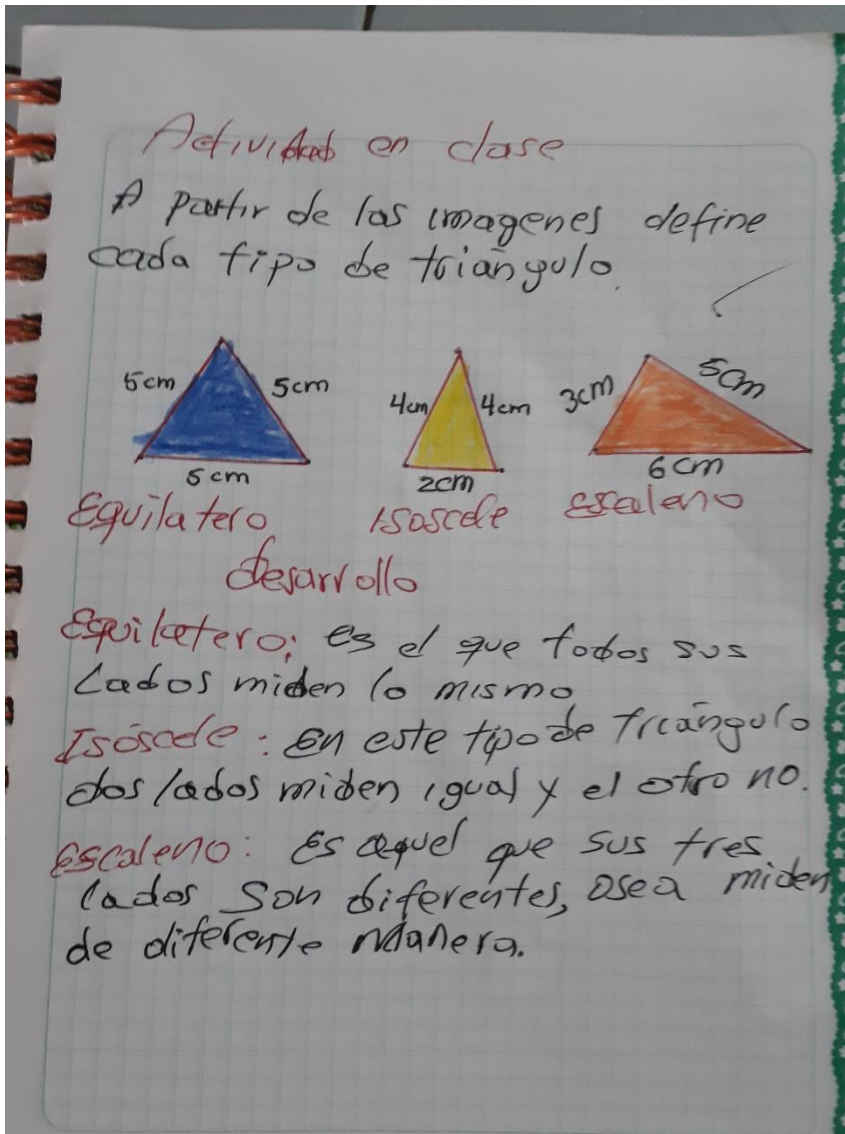 Actividad en clase
A partir de las imagenes define
cada tipo de triángulo.
5cm 5cm 4cm 4cm 3cm 5cm
5cm 2cm 6cm
Equilatero Isoscele Escaleno
desarrollo
Equilatero: es el que todos sus
lados miden lo mismo
Isóscele: En este tipo de triángulo
dos lados miden igual y el otro no.
Escaleno: Es aquel que sus tres
lados son diferentes, osea miden
de diferente manera.